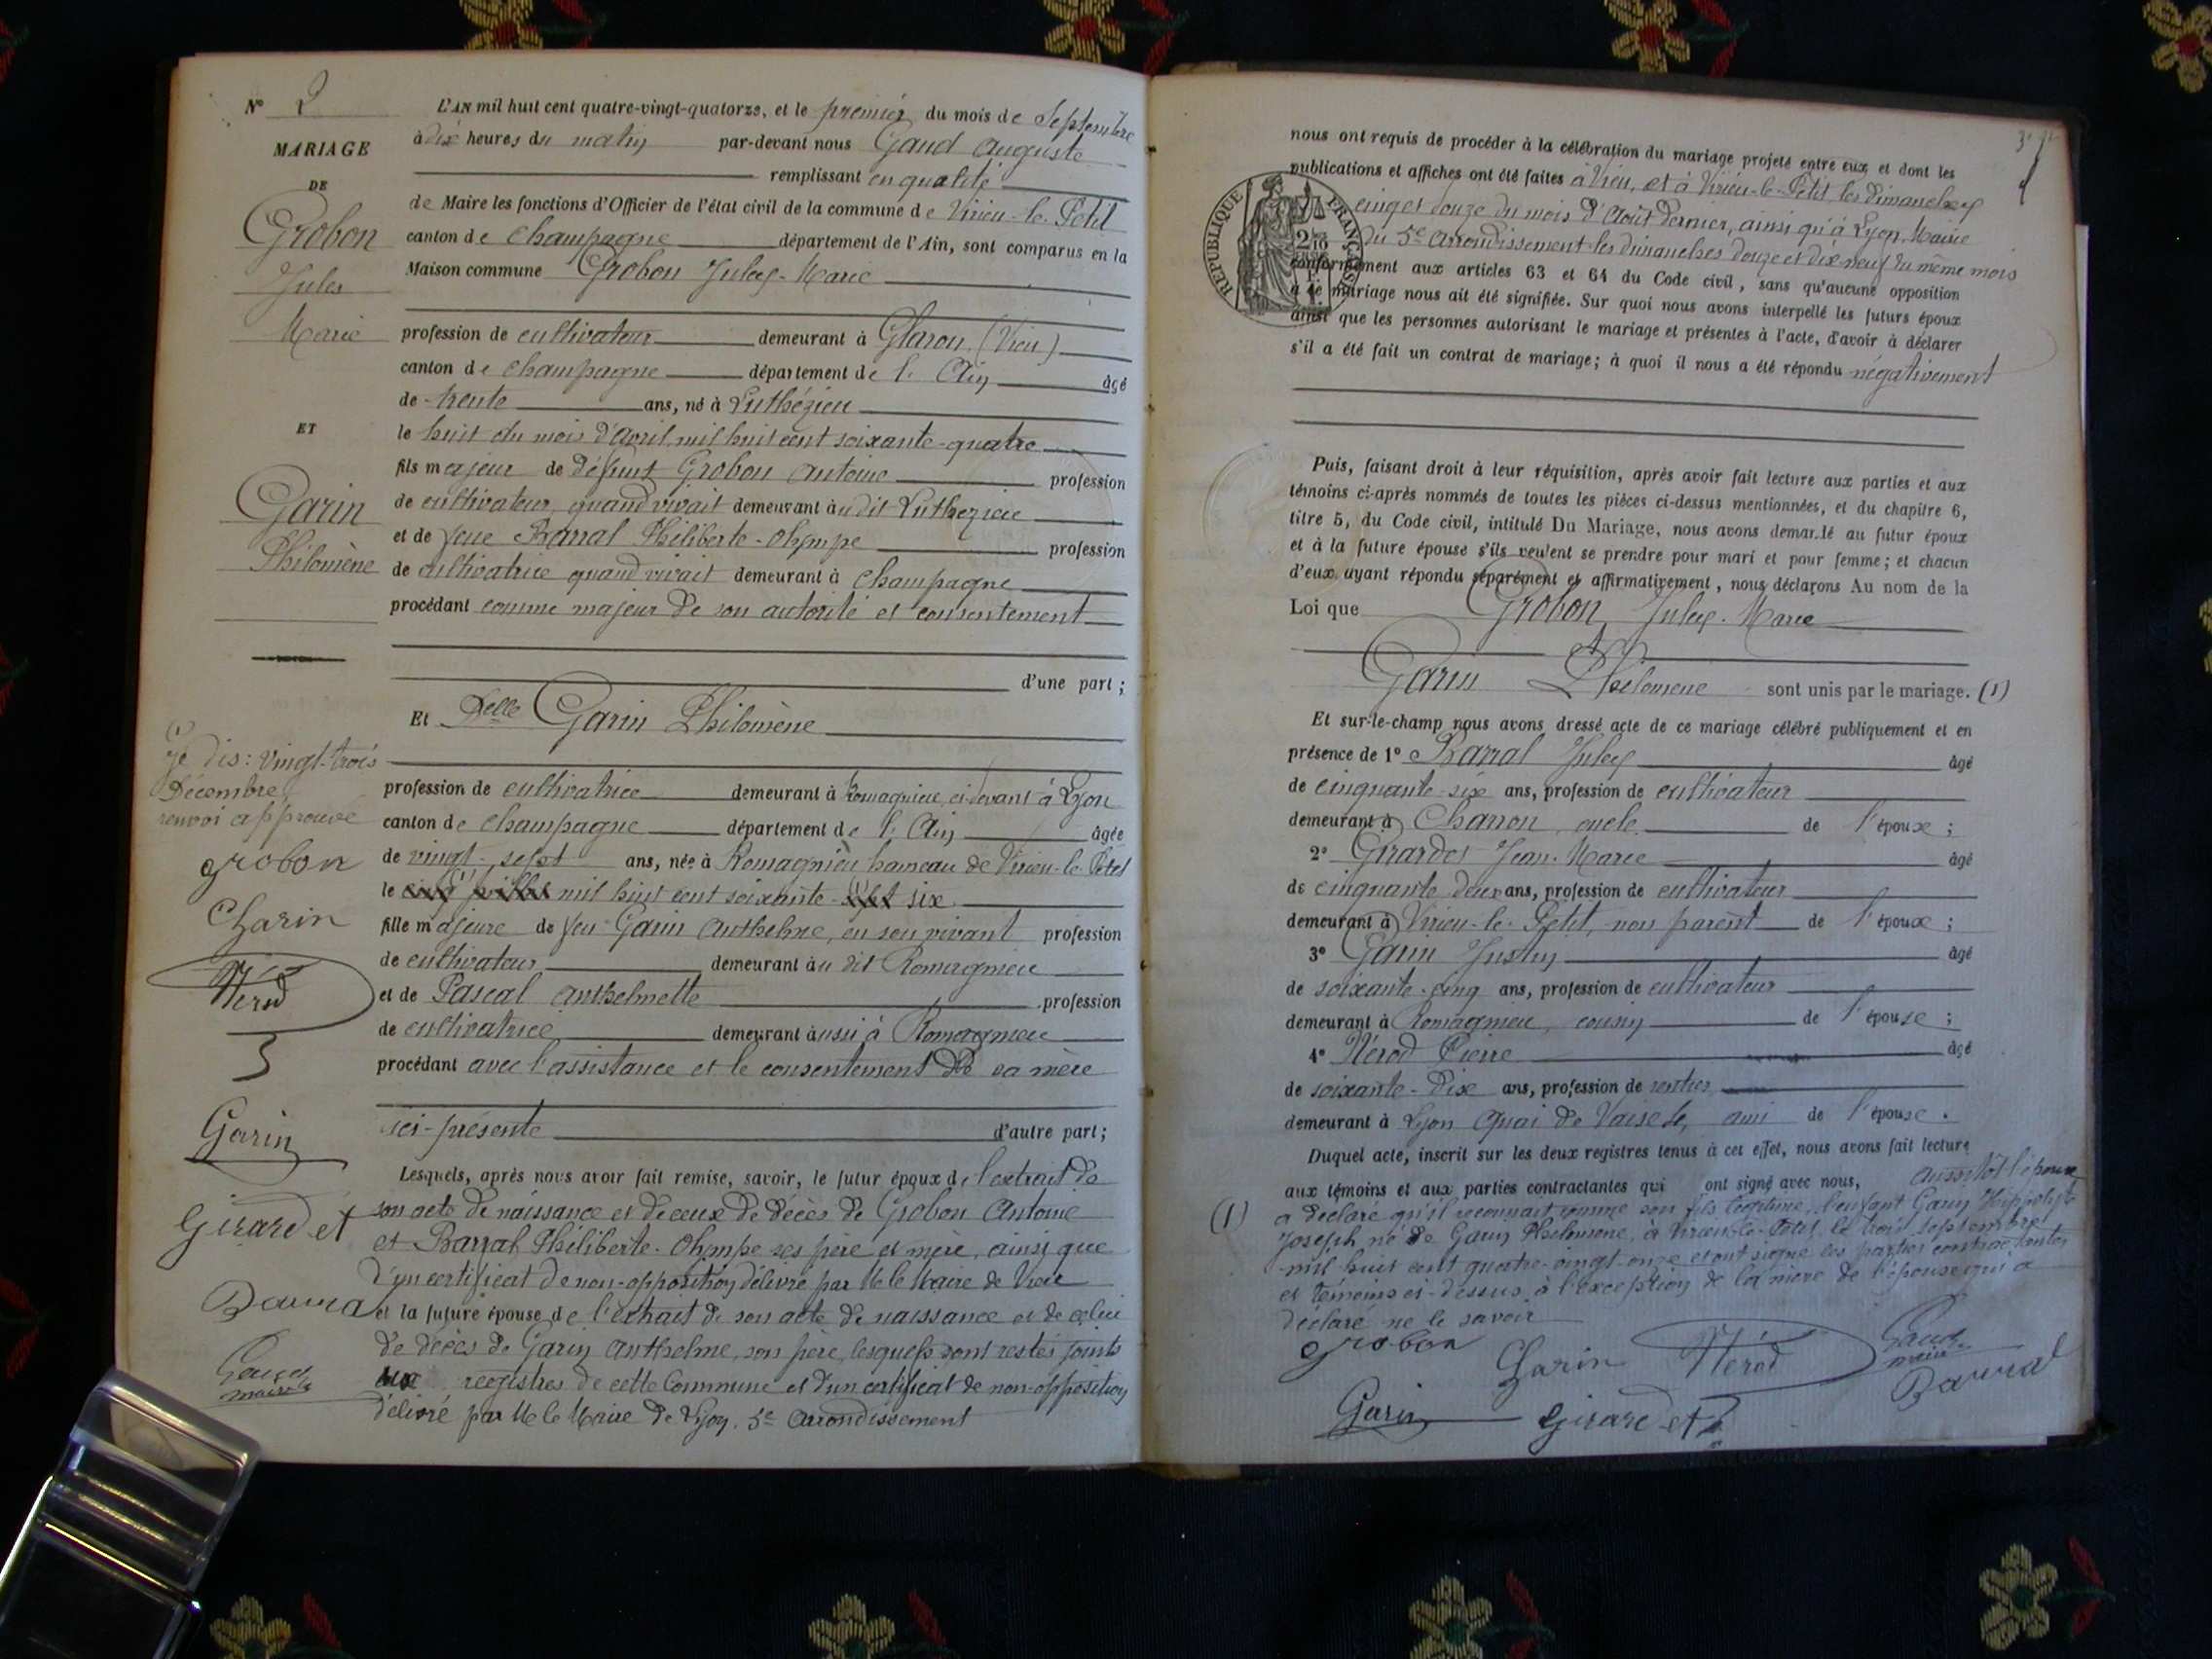 N° 2
MARIAGE
DE
Grobon
Jules
Marie
ET
Garin
Philomène
(1)
Je dis : vingt-trois
Décembre
renvoi approuvé
grobon
Garin
Nérod
Garin
Girardet
Barral
Gaud
maire
L'AN mil huit cent quatre-vingt-quatorze, et le premier du mois de Septembre
à dix heures du matin par-devant nous Gaud Auguste
remplissant en qualité
de Maire les fonctions d'Officier de l'état civil de la commune de Virieu-le-Petit
canton de Champagne département de l'Ain, sont comparus en la
Maison commune Grobon Jules-Marie
profession de cultivateur demeurant à (Vieu)
canton de Champagne département de l'Ain âgé
de trente ans, né à Luthézieu
le huit du mois d'Avril mil huit cent soixante-quatre
fils majeur de défunt Grobon Antoine profession
de cultivateur, quand vivait demeurant au dit Luthezieu
et de feue Barral Philiberte-Olympe profession
de cultivatrice quand vivait demeurant à Champagne
procédant comme majeur de son autorité et consentement
d'une part ;
Et Delle Garin Philomène
profession de cultivatrice demeurant à Romagnieu, ci-devant à Lyon
canton de Champagne département de l'Ain âgée
de vingt-sept ans, née à Romagnieu hameau de Virieu-le-Petit
le cinq juillet (1) mil huit cent soixante-sept six
fille majeure de feu Garin Anthelme, en son vivant profession
de cultivateur demeurant au dit Romagnieu
et de Pascal Anthelmette profession
de cultivatrice demeurant aussi à Romagnieu
procédant avec l'assistance et le consentement de sa mère
ici-présente d'autre part ;
Lesquels, après nous avoir fait remise, savoir, le futur époux de l'extrait de
son acte de naissance et de ceux de décès de Grobon Antoine
et Barral Philiberte-Olympe ses père et mère, ainsi que
d'un certificat de non-opposition délivré par M le Maire de Vieu
et la future épouse de l'extrait de son acte de naissance et de celui
de décès de Garin Anthelme, son père, lesquels sont restés joints
aux registres de cette Commune et d'un certificat de non-opposition
délivré par M le Maire de Lyon. 5e Arrondissement
nous ont requis de procéder à la célébration du mariage projeté entre eux et dont les
publications et affiches ont été faites à Vieu, et à Virieu-le-Petit les dimanches
cinq et douze du mois d'Août dernier, ainsi qu'à Lyon Mairie
du 5e Arrondissement les dimanches douze et dix-neuf du même mois
RÉPUBLIQUE FRANÇAISE
conformément aux articles 63 et 64 du Code civil, sans qu'aucune opposition
à ce mariage nous ait été signifiée. Sur quoi nous avons interpellé les futurs époux
ainsi que les personnes autorisant le mariage et présentes à l'acte, d'avoir à déclarer
s'il a été fait un contrat de mariage ; à quoi il nous a été répondu négativement
Puis, faisant droit à leur réquisition, après avoir fait lecture aux parties et aux
témoins ci-après nommés de toutes les pièces ci-dessus mentionnées, et du chapitre 6,
titre 5, du Code civil, intitulé Du Mariage, nous avons demandé au futur époux
et à la future épouse s'ils veulent se prendre pour mari et pour femme ; et chacun
d'eux ayant répondu séparément et affirmativement, nous déclarons Au nom de la
Loi que Grobon Jules-Marie
et
Garin Philomène sont unis par le mariage. (1)
Et sur-le-champ nous avons dressé acte de ce mariage célébré publiquement et en
présence de 1° Barral Jules âgé
de cinquante-six ans, profession de cultivateur
demeurant à oncle de l'époux ;
2° Girardet Jean-Marie âgé
de cinquante-deux ans, profession de cultivateur
demeurant à Virieu-le-Petit, non parent de l'époux ;
3° Garin Justin âgé
de soixante-cinq ans, profession de cultivateur
demeurant à Romagnieu, cousin de l'épouse ;
4° Nérod Pierre âgé
de soixante-dix ans, profession de rentier
demeurant à Lyon Quai de Vaise ami de l'épouse.
Duquel acte, inscrit sur les deux registres tenus à cet effet, nous avons fait lecture
aux témoins et aux parties contractantes qui ont signé avec nous, aussitôt l'époux
(1) a déclaré qu'il reconnait comme son fils légitime, l'enfant Garin Hippolyte
Joseph né de Garin Philomène, à Virieu-le-Petit, le trois septembre
mil huit cent quatre-vingt-onze et ont signé les parties contractantes
et témoins ci-dessus, à l'exception de la mère de l'épouse qui a
déclaré ne le savoir
grobon
Garin
Nérod
Gaud
maire
Barral
Garin
Girardet